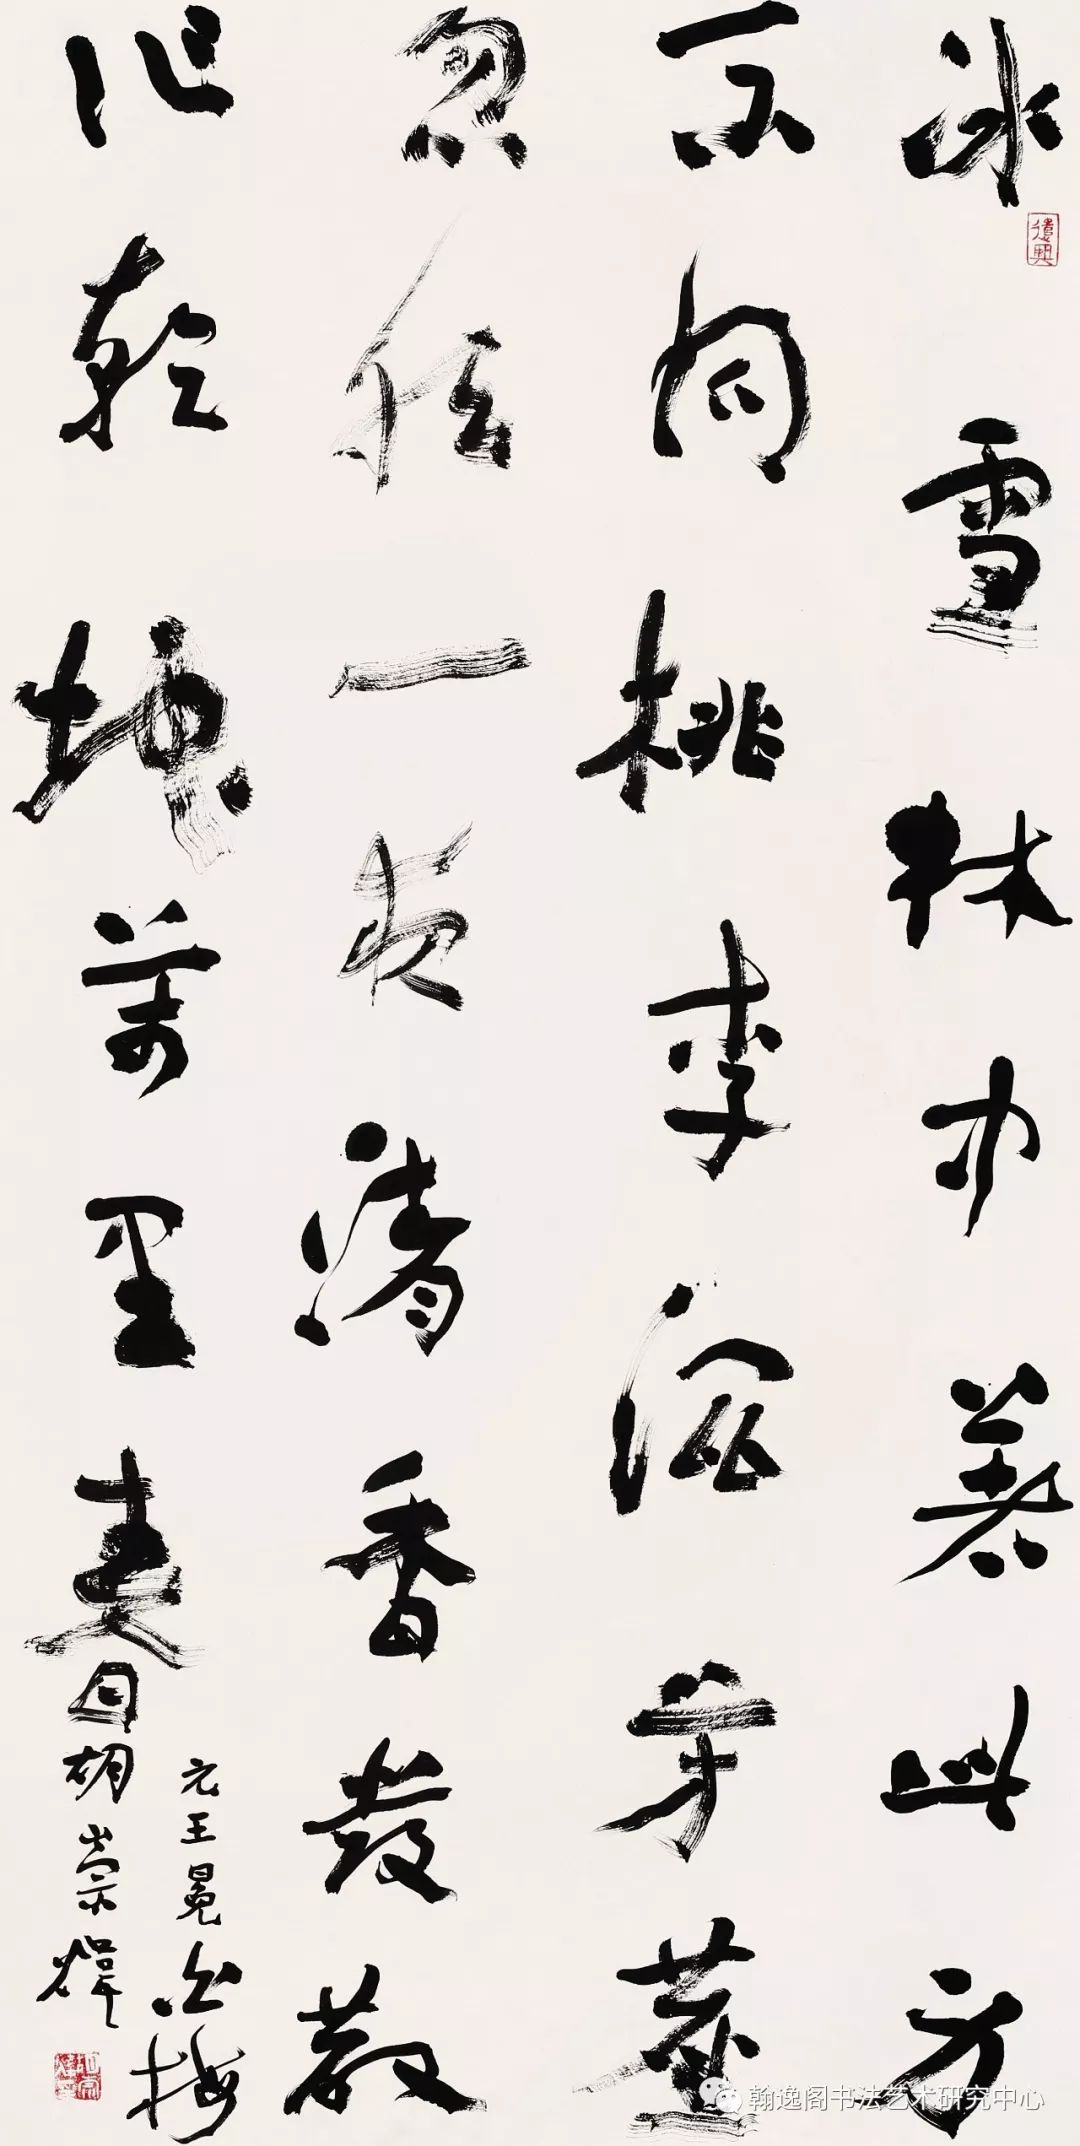 冰雪林中著此身
不同桃李混芳塵
忽然一夜清香發散
作乾坤萬里春
元王冕白梅
胡崇煒
翰逸阁书法艺术研究中心